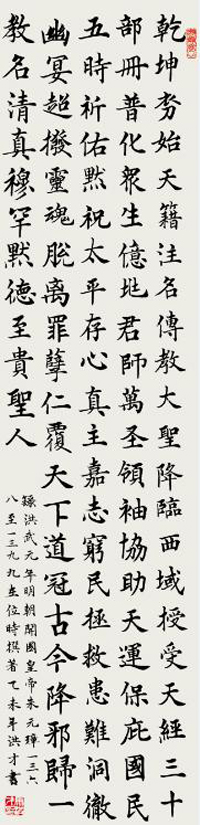 乾坤初始天籍注名傳教大聖降臨西域授受天經三十
部冊普化眾生億兆君師萬圣領袖協助天運保庇國民
五時祈佑默祝太平存心真主嘉志窮民拯救患難洞徹
幽冥超撥靈魂脱离罪孽仁覆天下道冠古今降邪歸一
教名清真穆罕默德至貴聖人
錄洪武元年明朝開國皇帝朱元璋一三六
八至一三九九在位時撰著乙未年洪才書